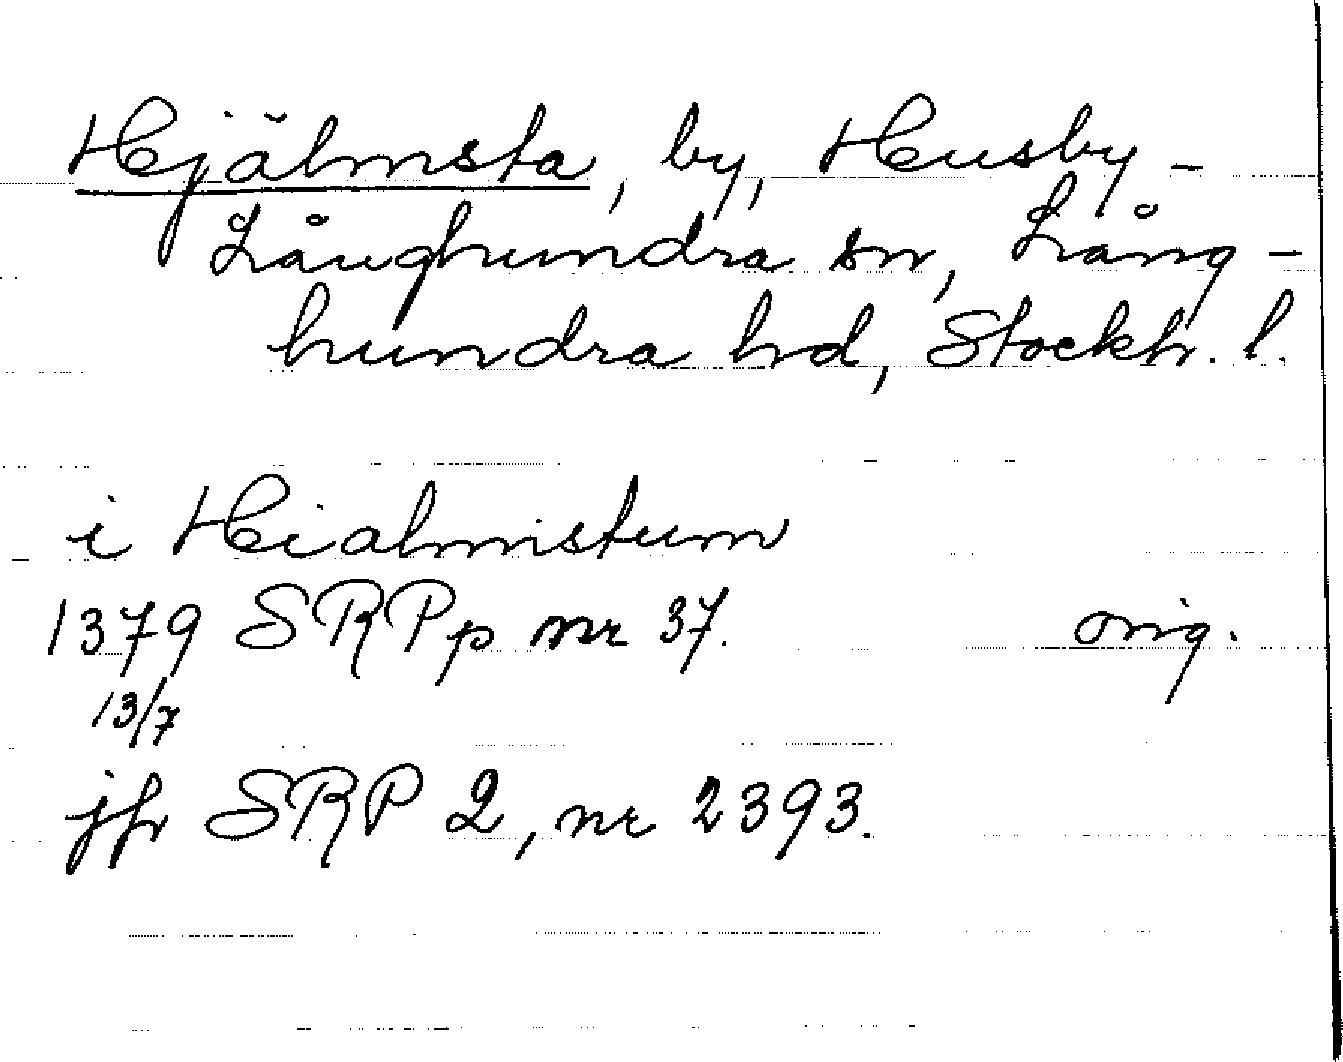 Hjälmsta, by, Husby-
Långhundra sn, Lång-
hundra hd, Stockh. l.
i Hialmistum
1379 SRPp nr 37. orig.
13/7
jfr SRP 2, nr 2393.